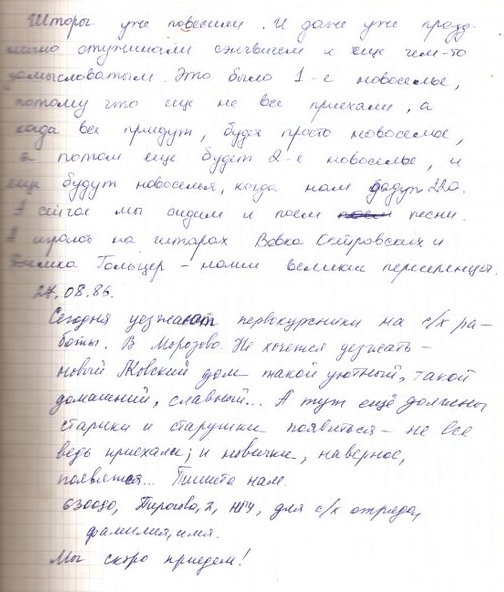 Шторы уже повесили. И даже уже празд-
нично отужинали сэндвичем и еще чем-то
домысловатым. Это было 1-е новоселье,
потому что еще не все приехали, а
когда все приедут, будет просто новоселье,
а потом еще будет 2-е новоселье, и
еще будут новоселья, когда нам дадут 220.
А сейчас мы сидим и поем песни.
А играют на гитарах Вовка Островских и
Гольцер – наши великие
27.08.86.
Сегодня уезжают первокурсники на с/х ра-
боты. В Морозово. Не хочется уезжать –
новый дом такой уютный, такой
домашний, славный... А тут ещё должны
старики и старушки появиться – не все
ведь приехали; и новички, наверное,
появятся... Пишите нам.
630090, Пирогова, 2, НГУ, для с/х отряда,
фамилия, имя.
Мы скоро приедем!